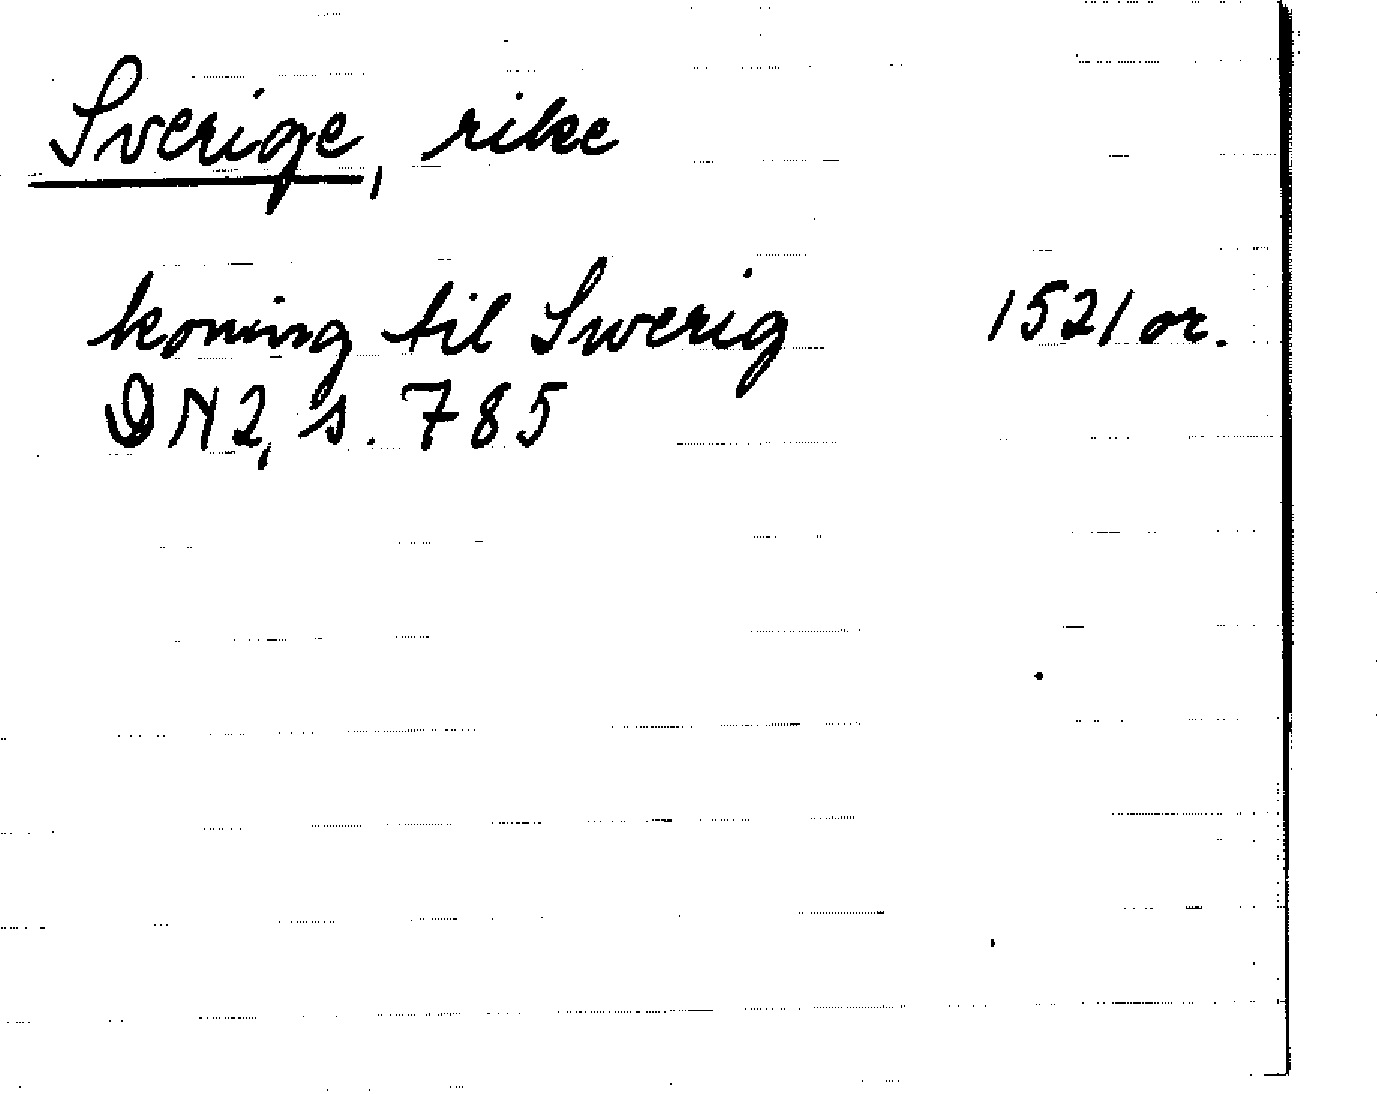 Sverige, rike
koning til Swerig 1521 or.
DN2, s. 785